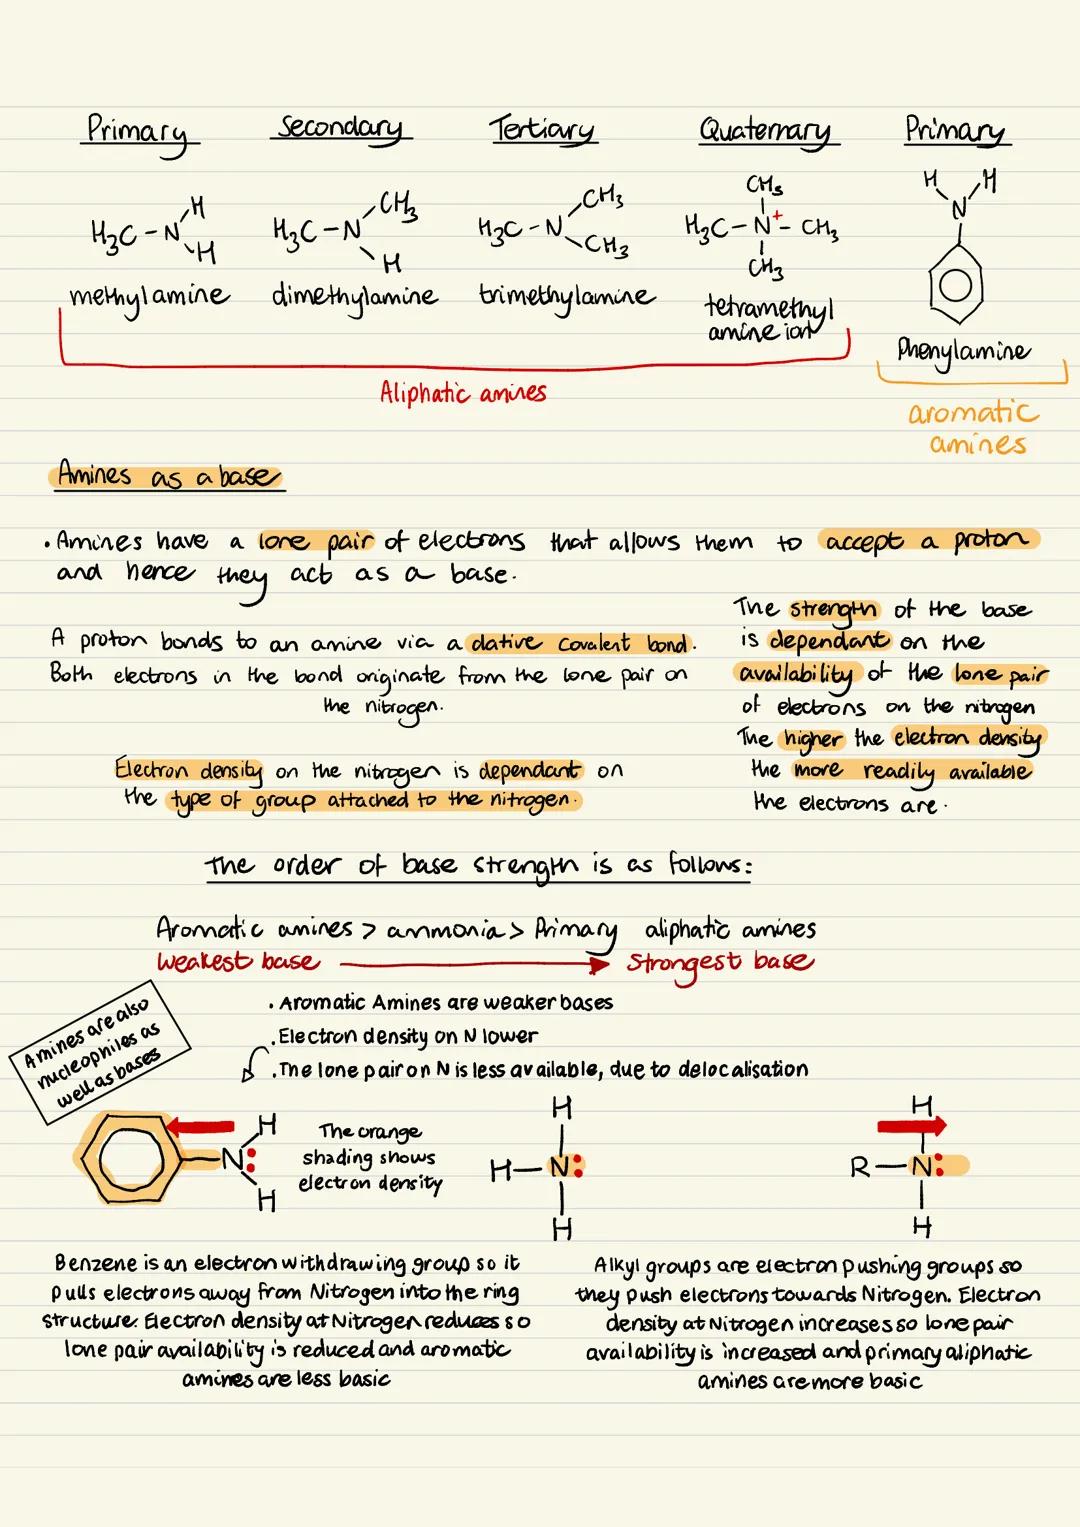 Primary Secondary Tertiary Quaternary Primary
H₃C-N H H
H₃C-N CH₃ H
H₃C-N CH₃ CH₃
CH₃ H₃C-N⁺-CH₃ CH₃
H H N
methylamine dimethylamine trimethylamine tetramethyl
amine ion
Phenylamine
Aliphatic amines
aromatic
amines
Amines as a base
• Amines have a lone pair of electrons that allows them to accept a proton
and hence they act as a base.
A proton bonds to an amine via a dative covalent bond.
Both electrons in the bond originate from the lone pair on
the nitrogen.
The strength of the base
is dependant on the
availability of the lone pair
of electrons on the nitrogen
The higher the electron density
the more readily available
the electrons are.
Electron density on the nitrogen is dependant on
the type of group attached to the nitrogen.
The order of base strength is as follows:
Aromatic amines > ammonia > Primary aliphatic amines
Weakest base Strongest base
Amines are also
nucleophiles as
well as bases
• Aromatic Amines are weaker bases
• Electron density on N lower
• The lone pair on N is less available, due to delocalisation
N: H H
The orange
shading shows
electron density
H
H-N:
H
H
R-N:
H
Benzene is an electron withdrawing group so it
pulls electrons away from Nitrogen into the ring
structure. Electron density at Nitrogen reduces so
lone pair availability is reduced and aromatic
amines are less basic
Alkyl groups are electron pushing groups so
they push electrons towards Nitrogen. Electron
density at Nitrogen increases so lone pair
availability is increased and primary aliphatic
amines are more basic